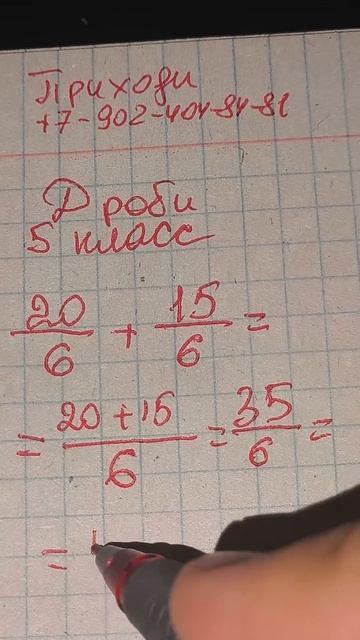 Приходи
+7-902-404-84-81
Дроби
5 класс
20/6 + 15/6 =
= 20+15/6 = 35/6 =
=